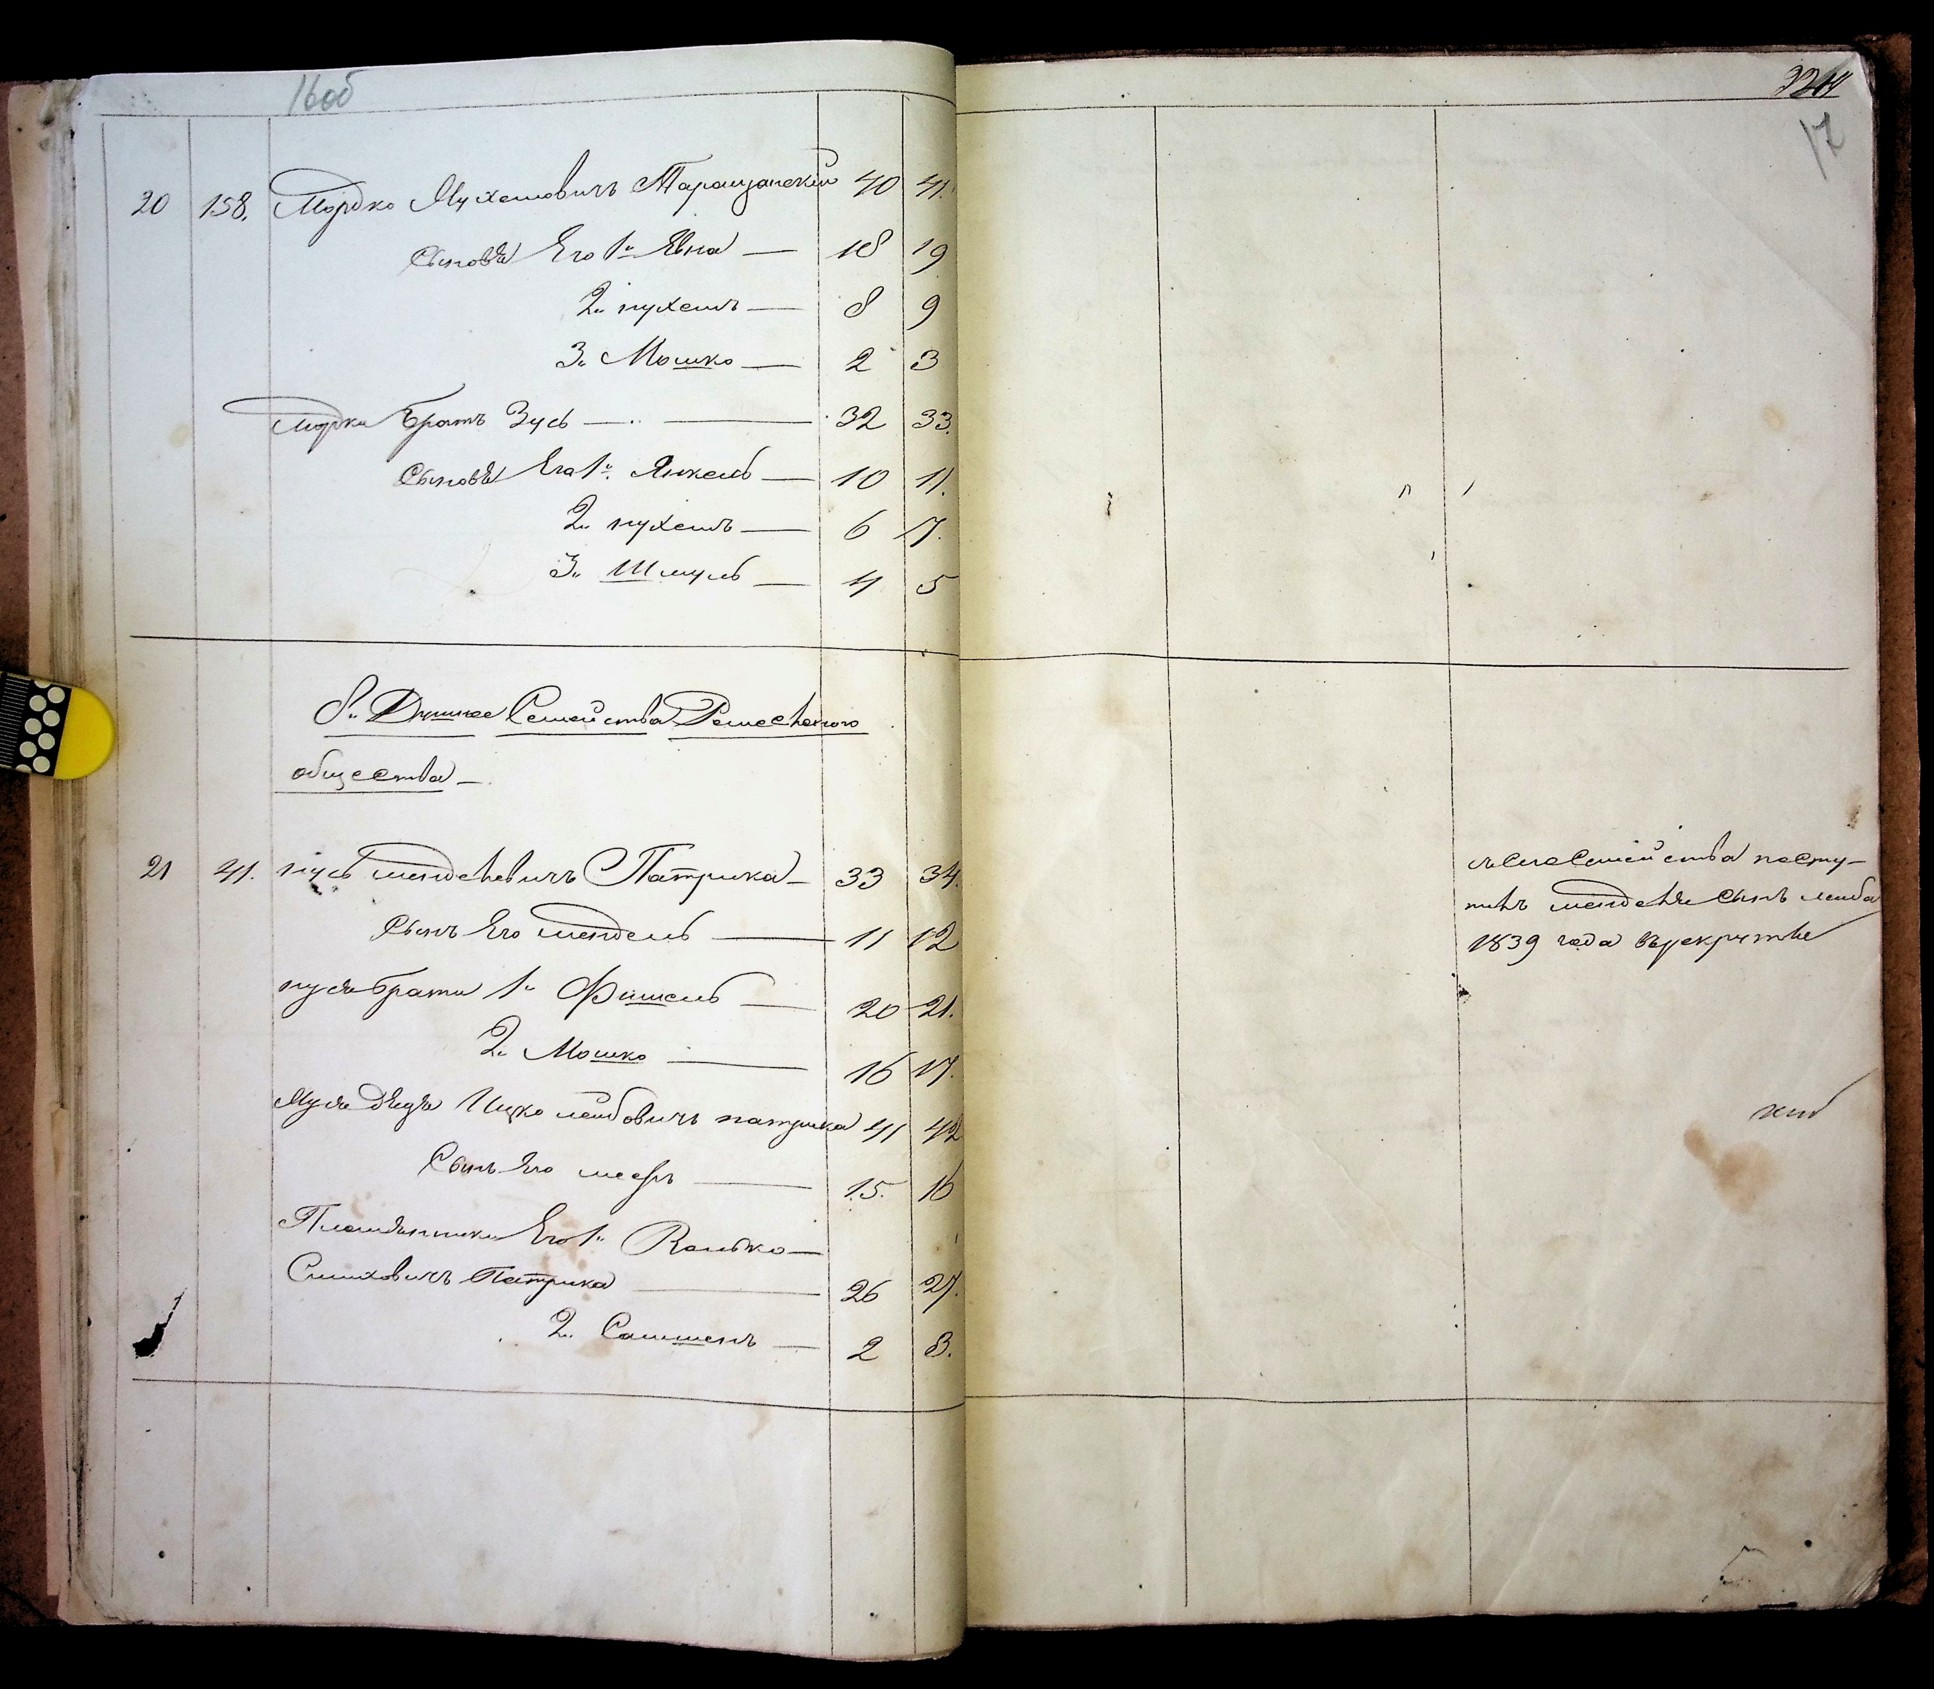 16об
20 158. Мордко Нухемовичъ Таращанскій 40 41.
Сыновья Его 1й Явна 18 19
2й нухемъ 8 9
3й Мошко 2 3
Мордки Братъ Зусь 32 33.
Сыновья Его 1й Янкель 10 11.
2й нухемъ 6 7.
3й Шмуль 4 5
8й Душное Семейства
общества
21 41. нусь менделевичъ Патрика 33 34.
Сынъ Его мендель 11 12
нуся браты 1й Фишель 20 21.
2й Мошко 16 17.
Нуся дядя Ицко лейбовичъ патрика 41 42
Сынъ Его мееръ 15. 16
Племянники Его 1й
Симховичъ Патрика 26 27.
2й 2 3.
17
семейства посту-
пилъ менделя сынъ лейба
1839 года въ рекруты